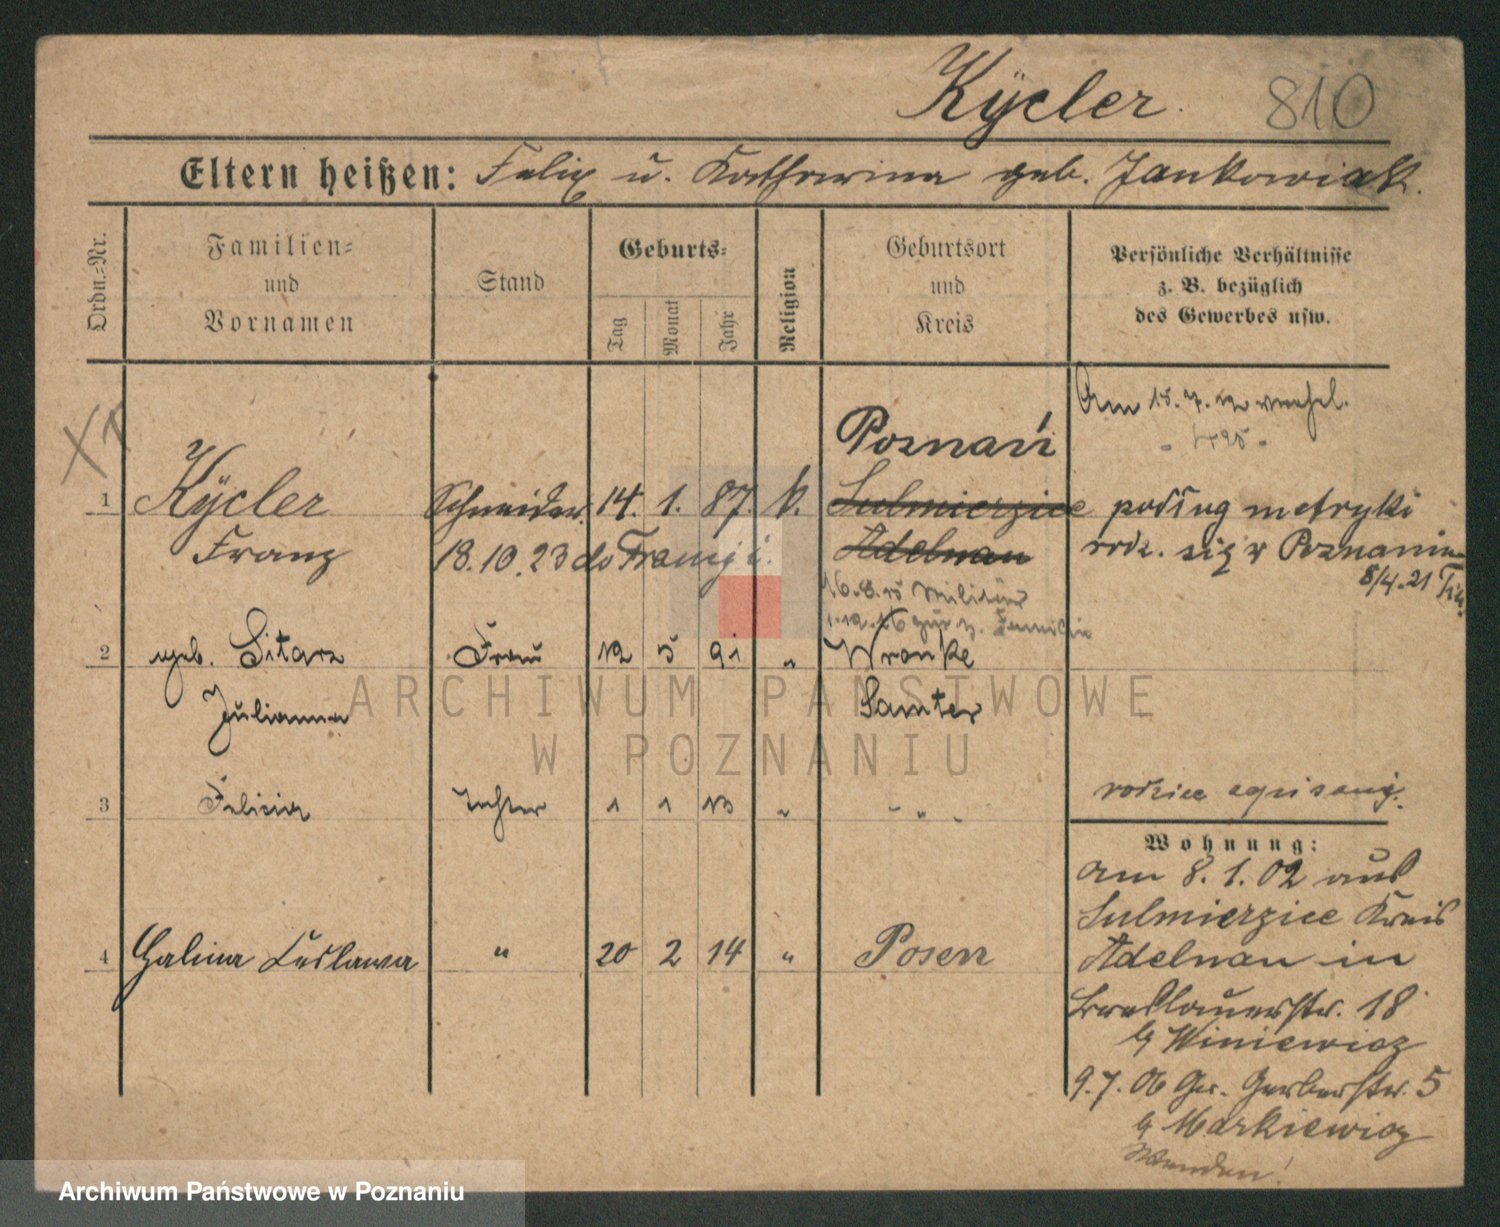 Kÿcler. 810
Eltern heißen: Felix u. Katharina geb. Jankowiak.
Ordn.=Nr.
Familien=
und
Vornamen
Stand
Geburts=
Tag
Monat
Jahr
Religion
Geburtsort
und
Kreis
Persönliche Verhältnisse
z. B. bezüglich
des Gewerbes usw.
Am 15. 7. 12
Poznań
1 Kÿcler Schneider. 14. 1. 87. k. Sulmierzice podług metryki
Franz 18.10.23 do Francji. Adelnau rodz. się w Poznaniu
8/4.21
16.8.15 Militär
1.12.16 zur Familie
2 geb. Sitarz Frau 12 5 91 " Wronke
Julianna Samter
3 Felicia Tochter 1 1 13 " - " -
rodzice
Wohnung:
am 8. 1. 02 aus
4 Halina Ceslawa " 20 2 14 " Posen
Sulmierzice Kreis
Adelnau in
Breslauerstr. 18
b Winiewicz
9.7.06 Gr. Gerberstr. 5
b Markiewicz
Wenden!
ARCHIWUM PAŃSTWOWE
W POZNANIU
Archiwum Państwowe w Poznaniu